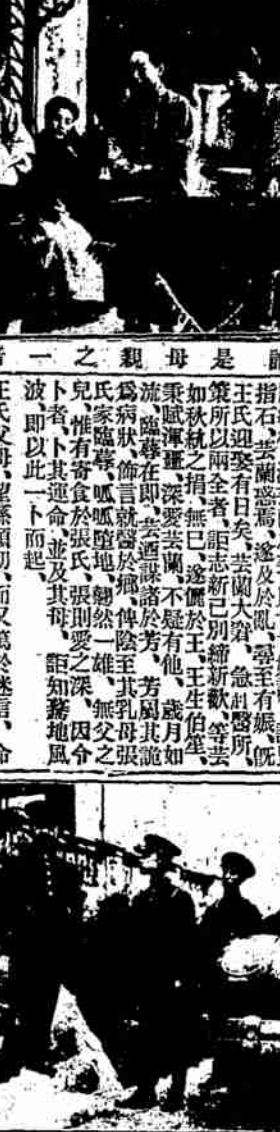 是母親之一
指石、芸蘭惑焉、遂及於亂、㝷至有娠、既
王氏迎娶有日矣、芸蘭大窘、急赴醫所、
策所以兩全者、詎志新已別締新歡、等芸
如秋紈之捐、無已、遂儷於王、王生伯笙、
秉賦渾噩、深愛芸蘭、不疑有他、歲月如
流、臨蓐在即、芸迺謀諸於芳、芳屬其詭
爲病狀、飾言就醫於鄉、俾陰至其乳母張
氏家臨蓐、呱呱墮地、翹然一雄、無父之
兒、惟有寄食於張氏、張則愛之深、因令
卜者、卜其運命、並及其母、詎知驀地風
波、即以此一卜而起、
王氏父母、望孫頗切、而又篤於迷信、命